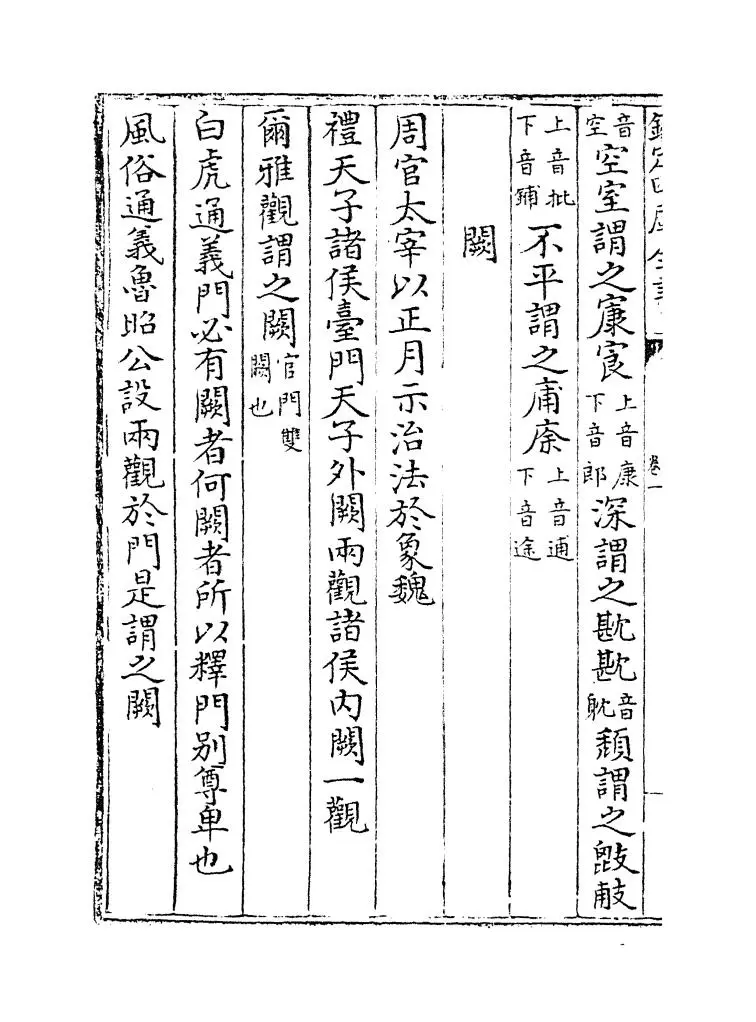 欽定四庫全書 卷一
音空空室謂之㝩㝗上音康下音郎深謂之戡戡音躭頽謂之㩻
上音批下音鋪不平謂之庯庩上音逋下音途
闕
周官太宰以正月示治法於象魏
禮天子諸侯臺門天子外闕兩觀諸侯内闕一觀
爾雅觀謂之闕官門雙闕也
白虎通義門必有闕者何闕者所以釋門别尊卑也
風俗通義魯昭公設兩觀於門是謂之闕